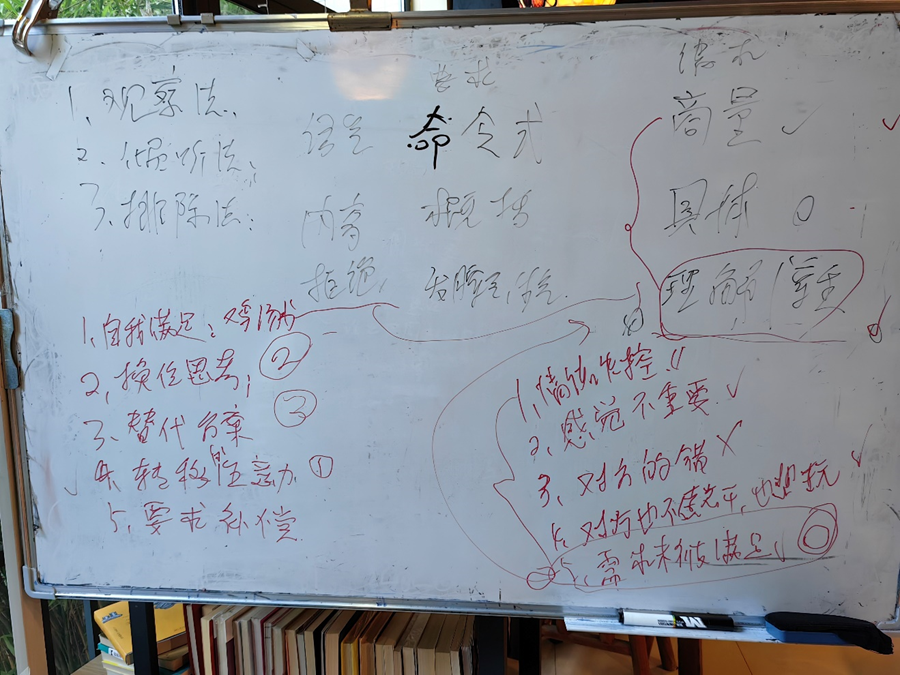 1、观察法、
2、倾听法;
3、排除法:
要求
语气 命令式
内容 概括
拒绝, 发脾气
请求
商量 ✓
具体 ○
理解 尊重
1、自我满足;
2、换位思考; ②
3、替代方案 ③
✓ 4、转移性 ①
5、要求补偿
1、情绪失控 ✓
2、感觉不重要 ✓
3、对方的错 ✗
4、对方也不
5、需求未被满足、